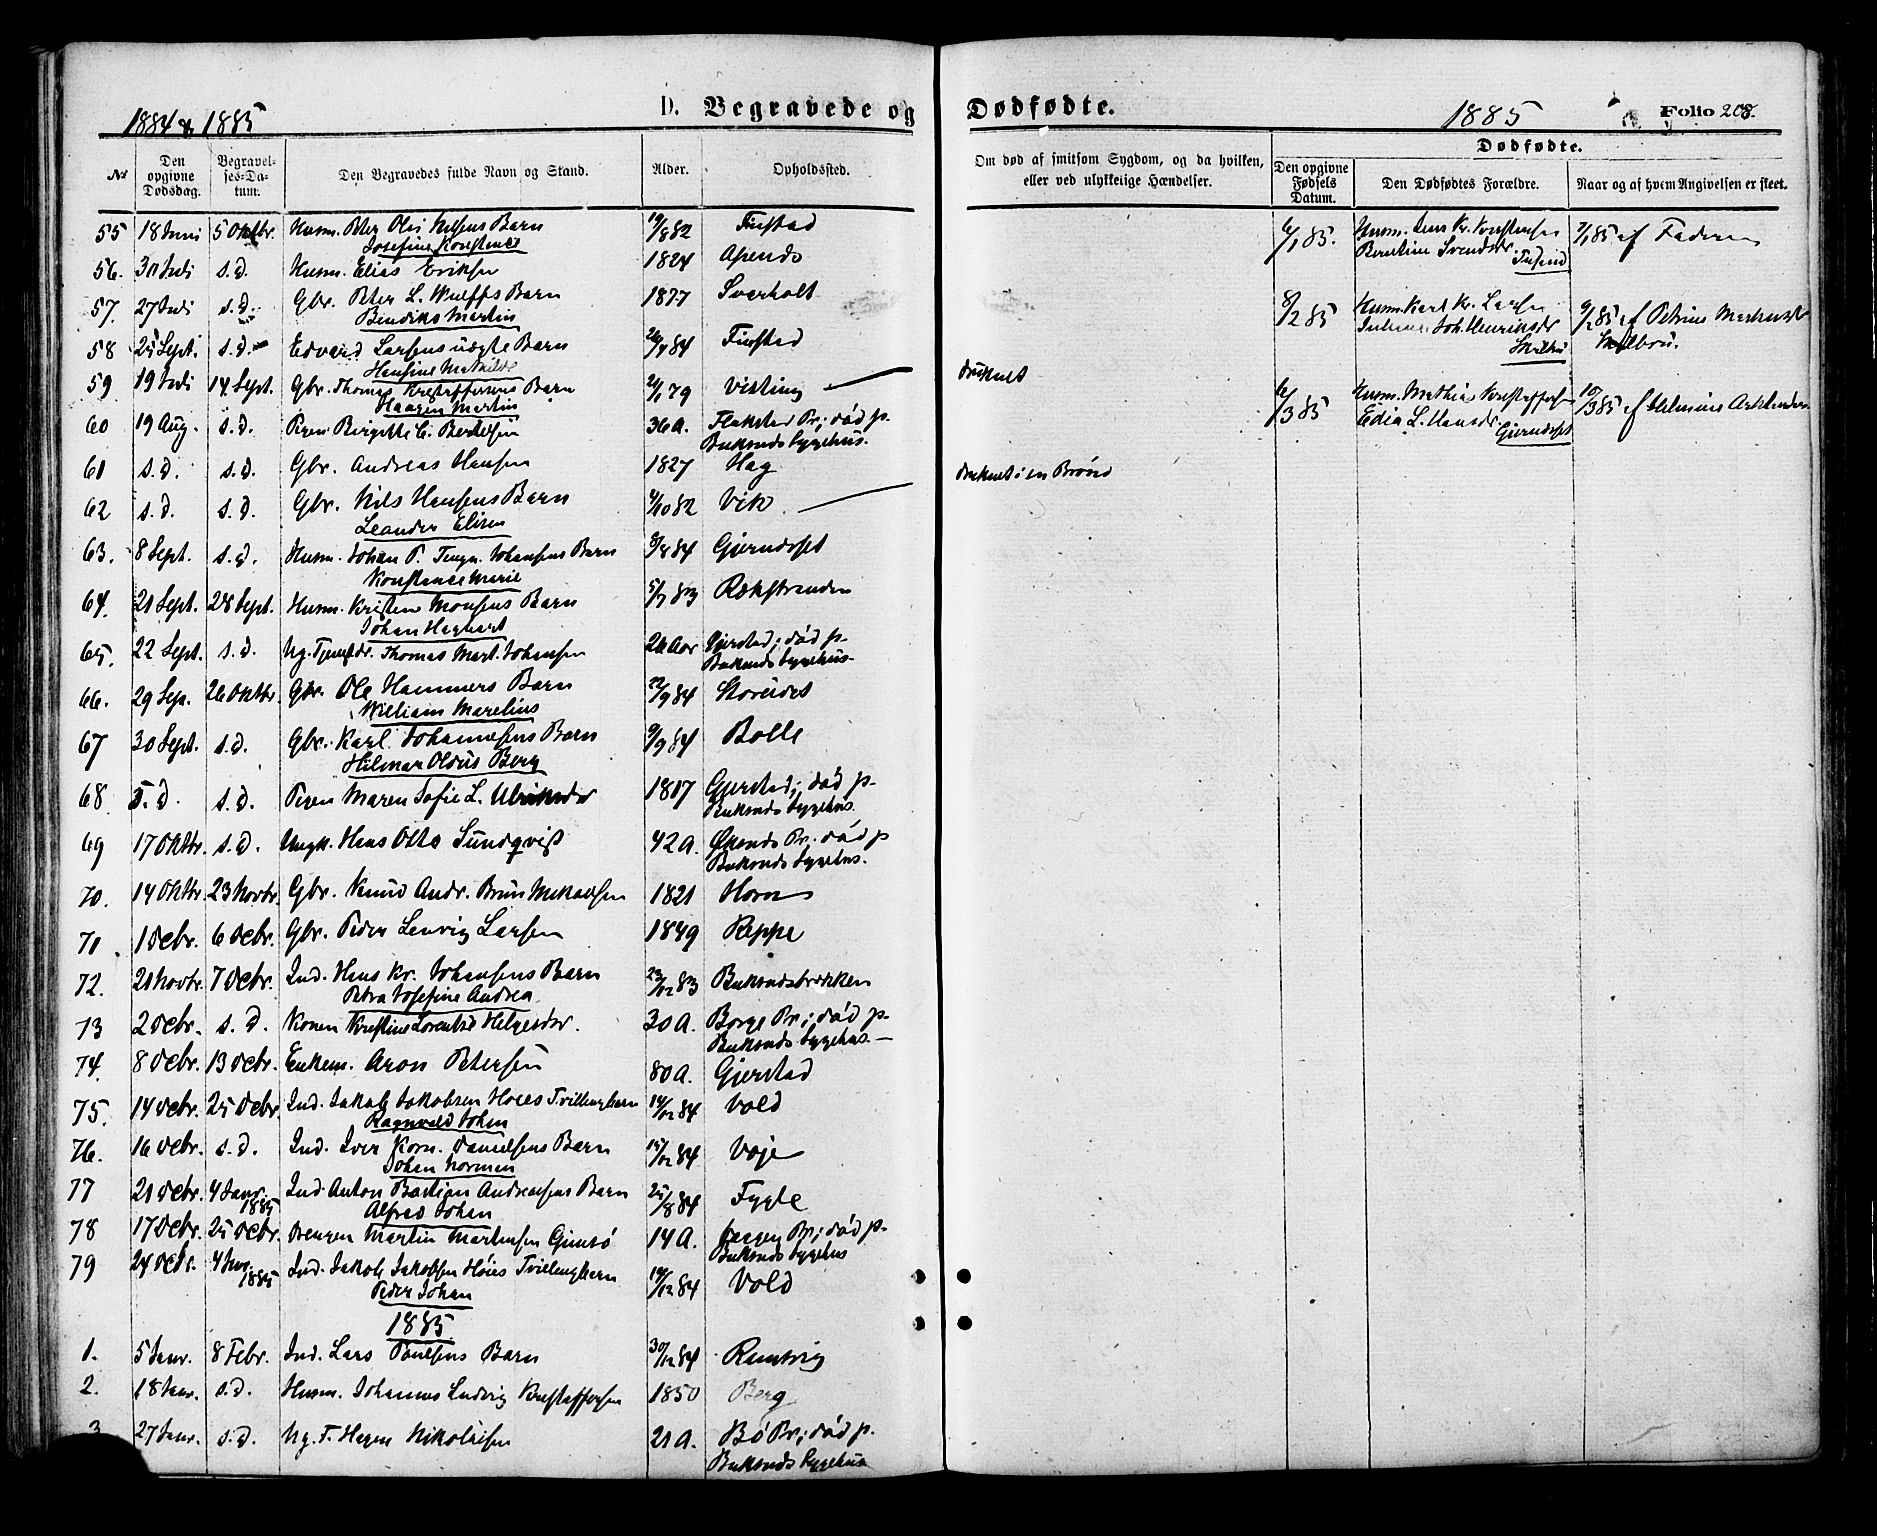 1884 & 1885
D. Begravede og
Dødfødte.
1885
Folio 208.
No
Den opgivne Dødsdag.
Begravelses-Datum.
Den Begravedes fulde Navn og Stand.
Alder.
Opholdssted.
Om død af smitsom Sygdom, og da hvilken, eller ved ulykkelige Hændelser.
Dødfødte.
Den opgivne Fødsels Datum.
Den Dødfødtes Forældre.
Naar og af hvem Angivelsen er skeet.
55 18 Juni 5 Oktbr. Husm. Peter Olai Nilsens Barn 19/8 82 Finstad
Josefine Konstance
56. 30 Juli s.d. Husm. Elias Eriksen 1824
57. 27 Juli s.d. Gbr. Peter L. Wulffs Barn 1877 Sverholt
Bendiks Martin
58 25 Sept. s.d. Edvard Larsens uægte Barn 26/4 84 Finstad
Hansine Mathilde
59 19 Juli 14 Sept. Gbr. Thomas Kristoffersens Barn 20/1 79 Visting druknet
Haagen Martin
60 19 Aug. s.d. Birgitte C. Bertelsen 36 A. Flakstad Pr; død p.
Buksnds Sygehus.
61 s.d. s.d. Gbr. Andreas Hansen 1827 Hag
62 s.d. s.d. Gbr. Nils Hansens Barn 4/10 82 Vik druknet i en Brønd
Leander Elisen
63. 8 Sept. s.d. Husm. Johan P. Johansens Barn 8/4 84 Gjerndset
Konstance Marie
64. 21 Sept. 28 Sept. Husm. Kristen Monsens Barn 5/7 83 Rækstranden
Johan Haghart
65. 22 Sept. s.d. Ug. Thomas Mart. Johansen 26 Aar Gjerstad; død p.
Buksnds Sygehus.
66. 29 Sep. 26 Oktbr. Gbr. Ole Hammers Barn 22/9 84 Storeidet
William Marelius
67 30 Sept. s.d. Gbr. Karl Johannesens Barn 9/9 84 Bolle
Hilmar Oldus Berg
68 s.d. s.d. Maren Sofie L. Ulriksdr 1817 Gjerstad; død p.
Buksnds Sygehus.
69 17 Oktbr. s.d. Ungk. Hans Otto Sundqvist 42 A. Øksnds Pr. død p
Buksnds Sygehus.
70. 14 Oktbr 23 Novbr. Gbr. Knud Andr. Brun Mikaelsen 1821 Horn
71 1 Decbr. 6 Decbr. Gbr. Peder Lenvig Larsen 1849 Reppe
72. 21 Novbr. 7 Decbr. Ind. Hans Kr. Johansens Barn 23/12 83 Buksndsbrækken
Petra Josefine Andrea
73 2 Decbr. s.d. Konen Kristine Lorentse Helgesdsr. 30 A. Borge Pr; død p.
Buksnds Sygehus.
74. 8 Decbr. 13 Decbr. Enkem. Aron Petersen 80 A. Gjerstad
75. 14 Decbr. 25 Decbr. Ind. Jakob Jakobsen Høies Tvillingbarn 14/12 84 Vold
Ragnvald Johan
76. 16 Decbr. s.d. Ind. Iver Korn. Danielsens Barn 15/12 84 Voje
Johan Normen
77 21 Decbr. 4 Janr. 1885 Ind. Anton Bastian Andreasens Barn 25/8 84 Fygle
Alfred Johan
78 17 Decbr. 25 Decbr. Drengen Martin Martinsen Gimsø 14 A. Pr; død p.
Buksnds Sygehus
79 24 Decbr. 4 Janr. 1885 Ind. Jakob Jakobsen Høies Tvillingbarn 14/12 84 Vold
Peder Johan
1885.
1. 5 Janr. 8 Febr. Ind. Lars Paulsens Barn 30/12 84 Ramsvig
2. 18 Janr. s.d. Husm. Johannes Ludvig Kristoffersen 1850 Berg
3 27 Janr. s.d. Ug. F. Hagen Nikolaisen 21 A. Bø Pr; død p.
Buksnds Sygehus
6/1 85. Husm. Jens Kr. Kristensen 7/1 85 af Faderen
Berntine Svendsdr
8/2 85 Husm. Karl Kr. Larsen 9/2 85 af Petrine Markusdr
Joh. Henriksdr
6/3 85 Husm. Mathias Kristoffersen 10/3 85 af
Edia L. Hansdr.
Gjerndset